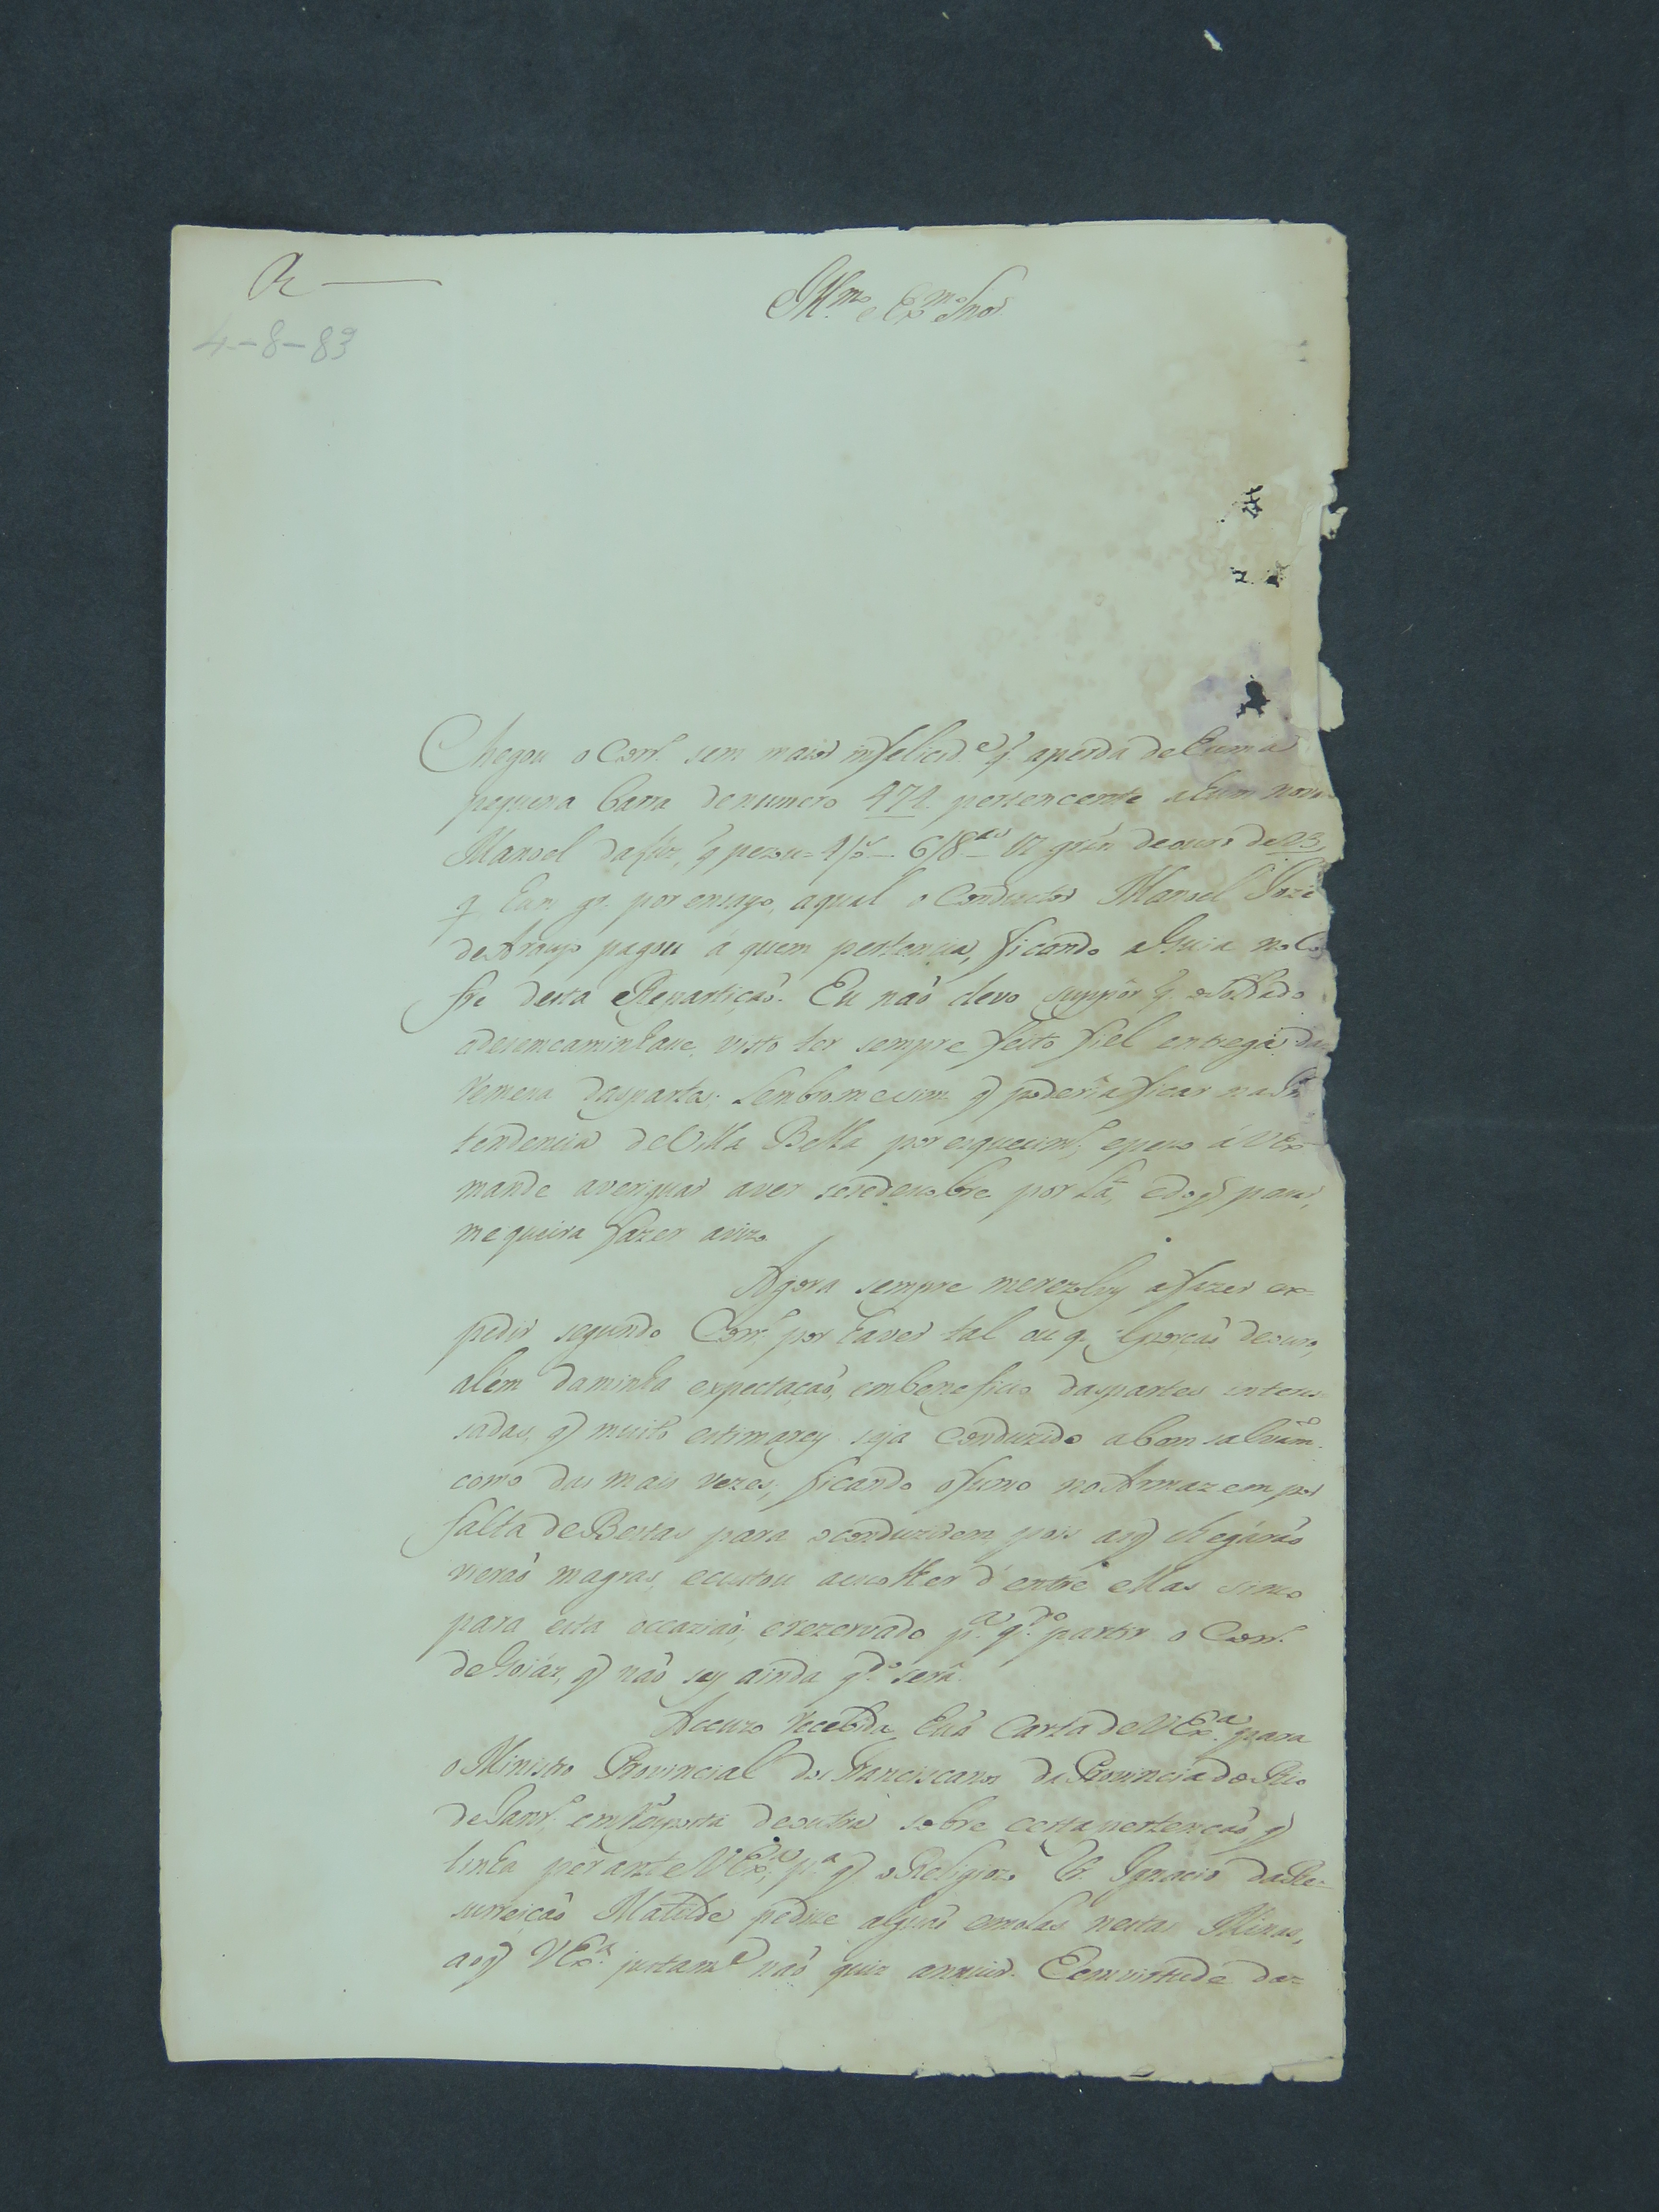 R.
4-8-83
Ill.mo e Ex.mo Snor
Chegou o Corr.o sem maior infelicid.e q. aperda dehuma
pequena barra denumero 471 pertencente ahum
Manoel daLuz, q pezou 6/8.as 12 gráos deouro de 23,
q. hum gr. por ensayo, aqual o Conductor Manoel Joze
deAraujo pagou á quem pertencia, ficando aGuia noCo
fre desta Repartiçaõ. Eu naõ devo suppôr q. oSoldado
adesemcaminhace, visto ter sempre feito fiel entrega da
remeça daspartes; Lembrome sim q poderia ficar naIn
tendencia deVilla Bella por esquecim.to, epeço á VEx
mande averiguar aver sesedescobre por Lá, edoq passar,
me queira fazer avizo.
Agora sempre merezolvy afazer ex-
pedir segundo Corr.o por haver tal ou q. porçaõ deouro,
além daminha expectaçaõ, embeneficio daspartes interes-
sadas, q muito estimarey seja conduzido abom salvam.to
como das mais vezes, ficando ofumo noArmazem por
falta deBestas para oconduzirem, pois asq chegáraõ
vieraõ magras, ecustou aescolher d'entre ellas sinco
para esta occaziaõ, erezervado p.a q.do partir o Corr.o
deGoiáz, q naõ sey ainda q.do será.
Accuzo recebida huã Carta deVEx.a para
o Ministro Provincial dos Franciscanos daProvincia do Rio
deJanr.o emresposta deoutra sobre certa pertençaõ, q
tinha perante VEx.a, p.a q. oReligiozo Fr. Ignacio daRe-
surreiçaõ Matilde pedisse alguãs esmolas nestas Minas,
aoq VEx.a justam.e naõ quiz annuir. Eemvirtude da-